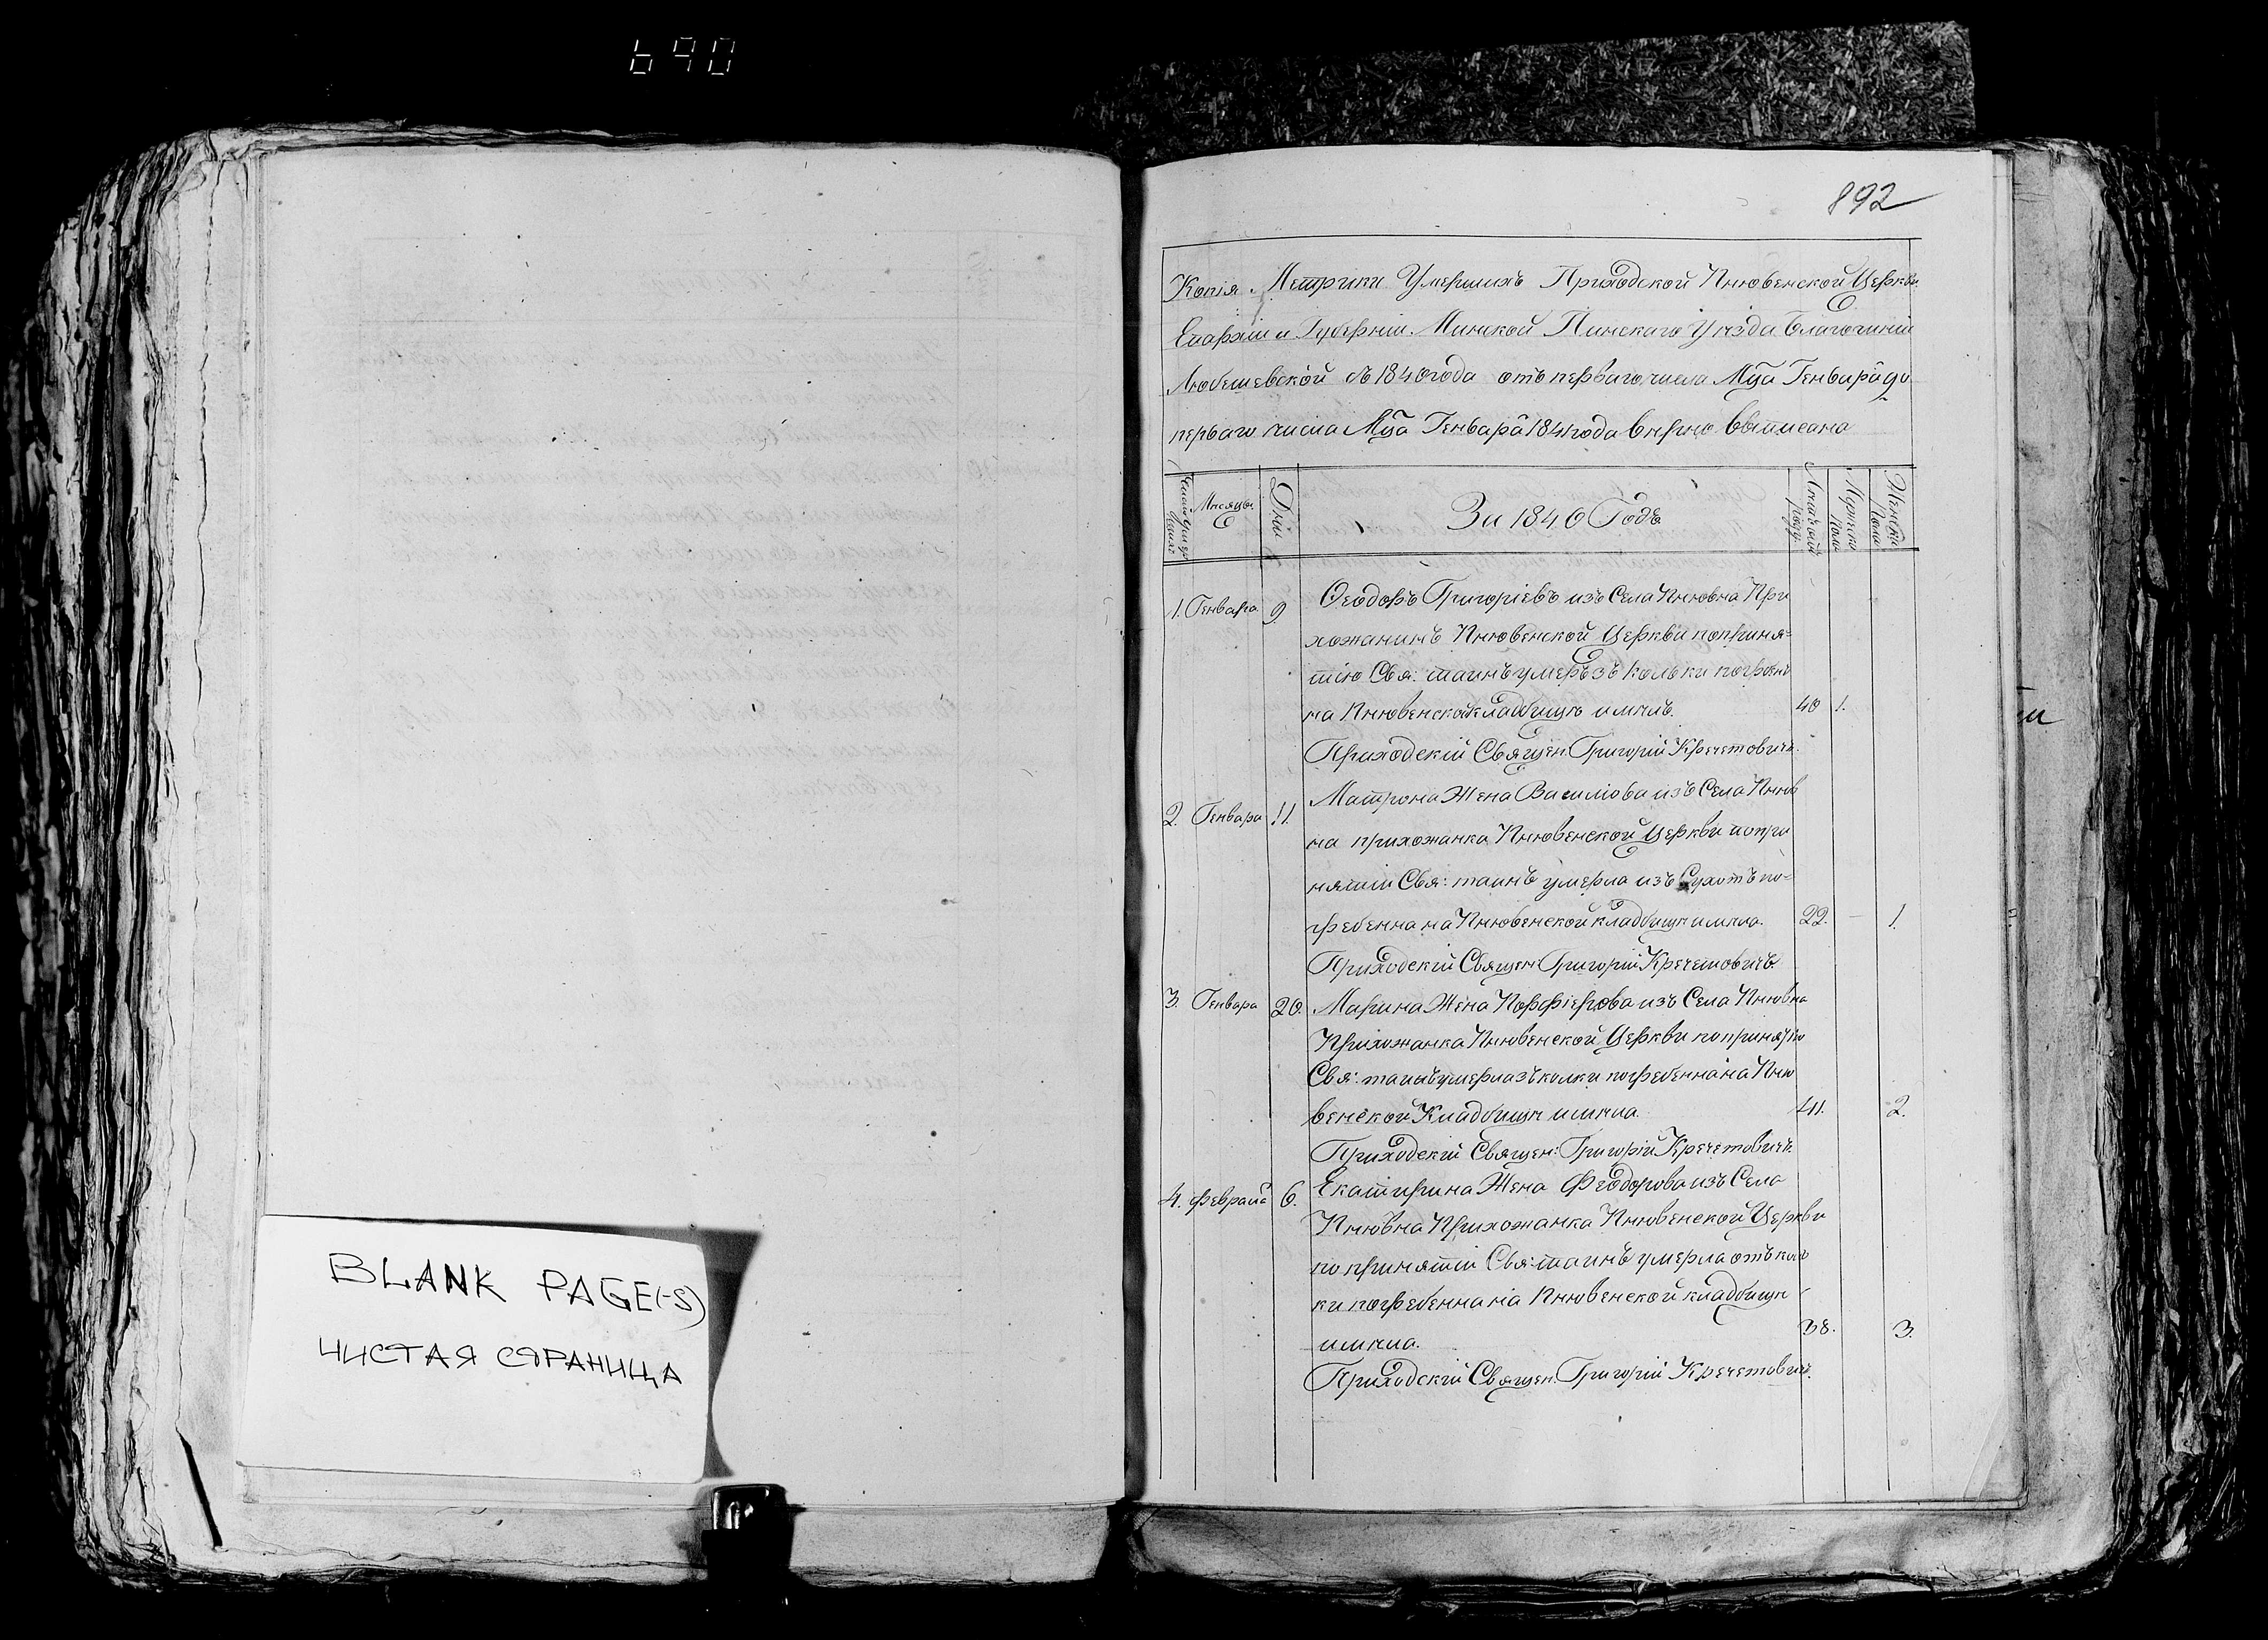 690
892
Копія Метрики Умершихъ Приходской Пнювенской Церкви
Епархіи и Губерніи Минской Пинскаго Уѣзда Благочинія
Любешевской съ 1840 года отъ перваго числа Мца Генвара до
перваго числа Мца Генвара 1841 года вѣрно выписана
Мѣсяцы
Дни
За 1840 Годъ
Мужеска Пола
Женска Пола
1. Генвара 9 Ѳеодоръ Григоріевъ изъ Села Пнювна При
хожанинъ Пнювенской Церкви поприня=
тію Свя: таинъ умеръ зъ кольки погребенъ
на Пнювенской кладбищѣ имѣлъ. 40 1.
Приходскій Священ. Григорій Кречетовичъ.
2. Генвара 11. Матрона Жена Василіова изъ Села Пнюв
на прихожанка Пнювенской Церкви попри
нятіи Свя: таинъ умерла изъ Сухотъ по=
гребенна на Пнювенской кладбищѣ имѣла. 22. — 1.
Приходскій Священ: Григорій Кречетовичъ.
3. Генвара 20. Марина Жена Порфіерова изъ Села Пнювна
Прихожанка Пнювенской Церкви попринятію
Свя: таинъ умерла зъ колки погребенна на Пню
венской Кладбищѣ имѣла. 41. 2.
Приходскій Священ: Григорій Кречетовичъ.
4. Февраля 6. Екатирина Жена Феодорова изъ Села
Пнювна Прихожанка Пнювенской Церкви
по принятіи Свя: таинъ умерла отъ коль
ки погребенна на Пнювенской кладбищѣ
имѣла. 38. 3.
Приходскій Священ. Григорій Кречетович.
BLANK PAGE(-S)
ЧИСТАЯ СТРАНИЦА